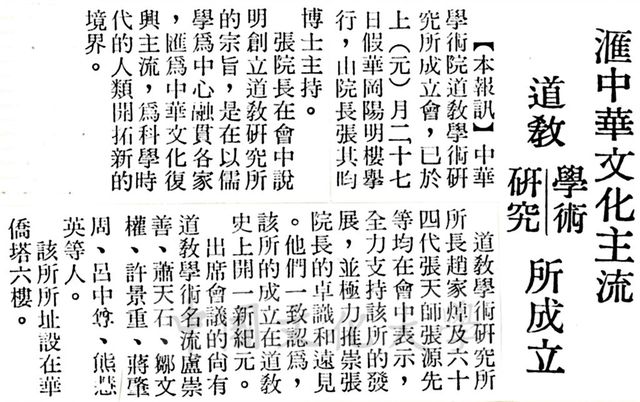 滙中華文化主流
道教學術研究所成立
【本報訊】中華
學術院道教學術硏
究所成立會，已於
上（元）月二十七
日假華岡陽明樓舉
行，由院長張其昀
博士主持。
張院長在會中說
明創立道教硏究所
的宗旨，是在以儒
學爲中心融貫各家
，匯爲中華文化復
興主流，爲科學時
代的人類開拓新的
境界。
道教學術硏究所
所長趙家焯及六十
四代張天師張源先
等均在會中表示，
全力支持該所的發
展，並極力推崇張
院長的卓識和遠見
。他們一致認爲，
該所的成立在道教
史上開一新紀元。
出席會議的尙有
道教學術名流盧崇
善、蕭天石、鄒文
權、許景重、蔣肇
周、呂中尊、熊慧
英等人。
該所所址設在華
僑塔六樓。